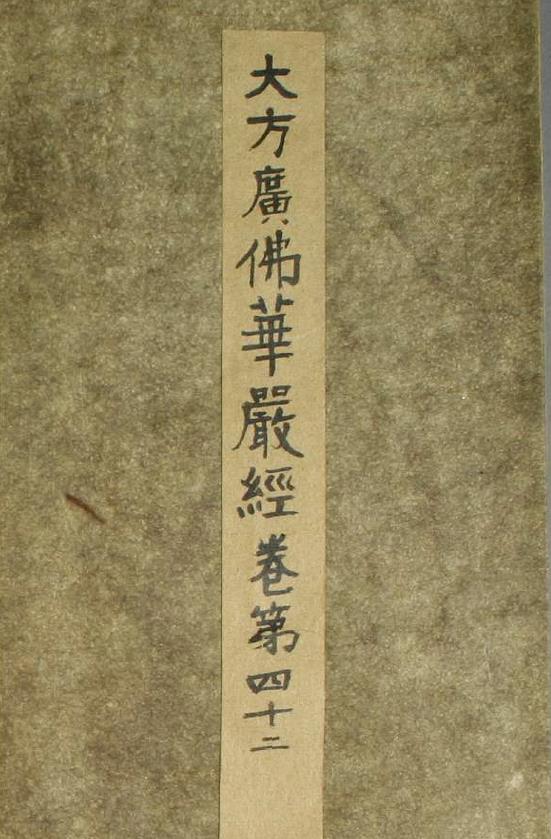 大方廣佛華嚴經卷第四十二